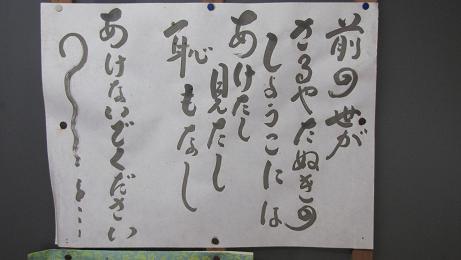 前の世が
さるやたぬきの
しょうこには
あけたし
見たし
恥もなし
あけないでください